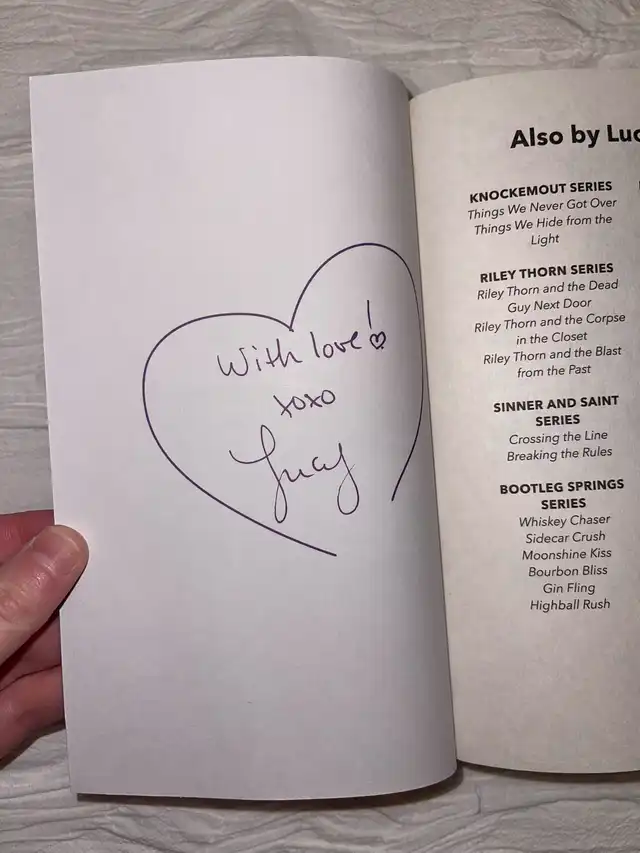 With love!
xoxo
Lucy
Also by Luc
KNOCKEMOUT SERIES
Things We Never Got Over
Things We Hide from the
Light
RILEY THORN SERIES
Riley Thorn and the Dead
Guy Next Door
Riley Thorn and the Corpse
in the Closet
Riley Thorn and the Blast
from the Past
SINNER AND SAINT
SERIES
Crossing the Line
Breaking the Rules
BOOTLEG SPRINGS
SERIES
Whiskey Chaser
Sidecar Crush
Moonshine Kiss
Bourbon Bliss
Gin Fling
Highball Rush